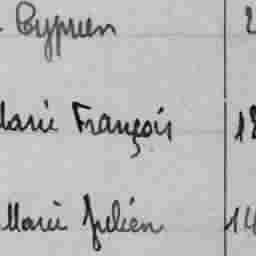 Cyprien 2
Marie François 18
Marie Julien 14